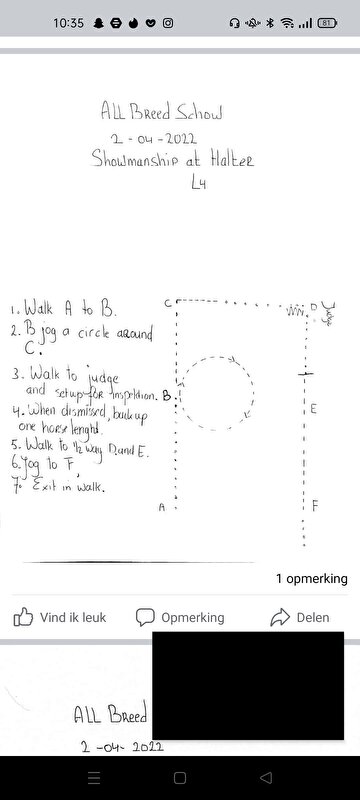 10:35
81
ALL BREED Schow
2-04-2022
Showmanship at Halter
L4
1. Walk A to B.
2. B jog a circle around
C.
3. Walk to judge
and setup for inspektion.
4. When dismissed, back up
one horse lenght.
5. Walk to 1/2 way D and E.
6. Jog to F,
7. Exit in walk.
C
D
Judge
B
E
A
F
1 opmerking
Vind ik leuk
Opmerking
Delen
ALL BREED
2-04-2022